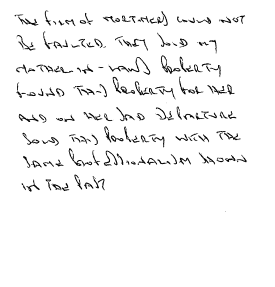 THE FIRM OF MORTIMERS COULD NOT
BE FAULTED. THEY SOLD MY
MOTHER-IN-LAWS PROPERTY
FOUND THIS PROPERTY FOR HER
AND ON HER SAD DEPARTURE
SOLD THIS PROPERTY WITH THE
SAME PROFESSIONALISM SHOWN
IN THE PAST